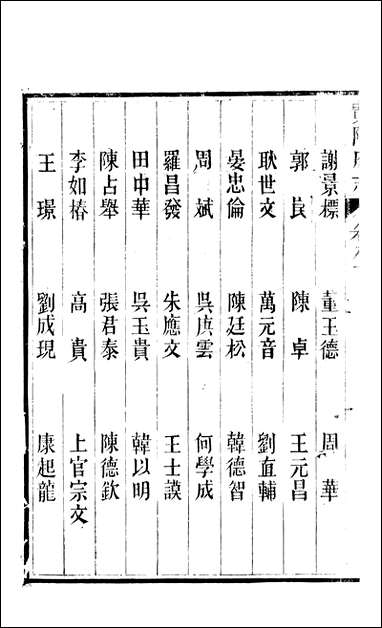 謝景標 董玉德 周華
郭良 陳卓 王元昌
耿世文 萬元音 劉直輔
晏忠倫 陳廷松 韓德智
周斌 吳庚雲 何學成
羅昌發 朱應文 王士謨
田中華 吳玉貴 韓以明
陳占舉 張君泰 陳德欽
李如椿 高貴 上官宗文
王璟 劉成現 康起龍